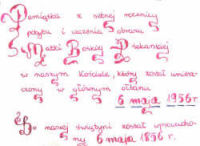 Pamiątka z setnej rocznicy
pobytu i uczczenia obrazu
Matki Boskiej Piekarskiej
w naszym Kościele, który został umiesz-
czony w głównym ołtarzu
6 maja 1956 r
naszej świątyni został
ny 6 maja 1896 r.